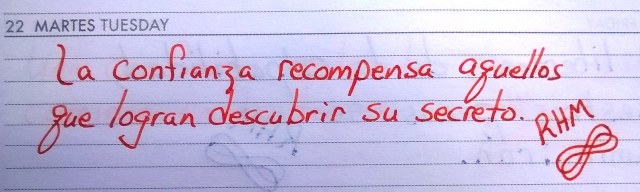 22 MARTES TUESDAY
La confianza recompensa aquellos
que logran descubrir su secreto.
RHM